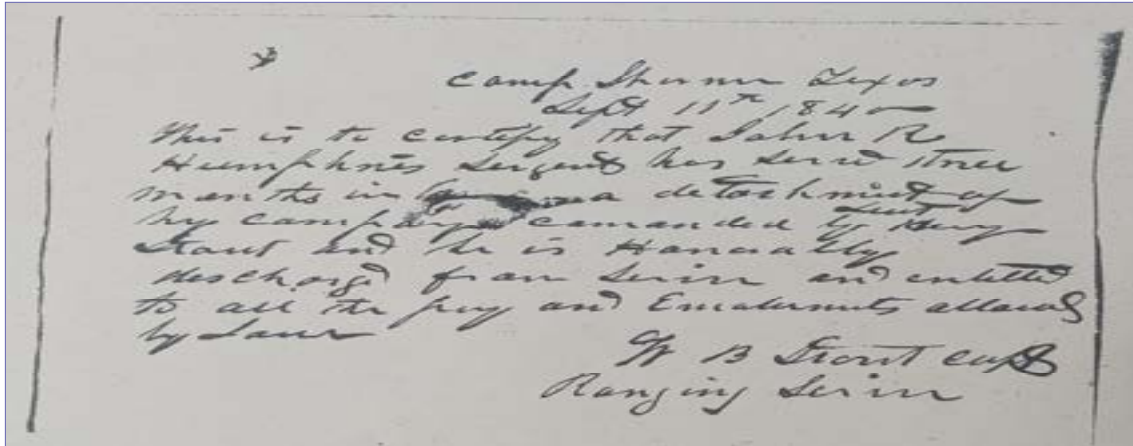 Camp Sherman Texos
Sept 11th 184
This is to certify that John R
Humphries Sergent has servd three
months in a detachment of
my company comanded by Leut Henry
Stout and he is Honorably
deschargd from Servin and entitled
to all the pay and Emaluments allowed
by Law
W B Stout Capt
Ranging Servin